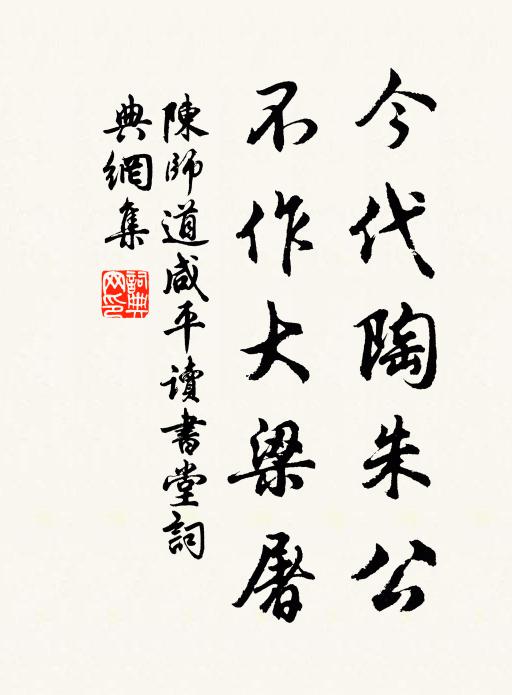 今代陶朱公
不作大梁屠
陳師道咸平讀書堂詞
典網集
詞典网印